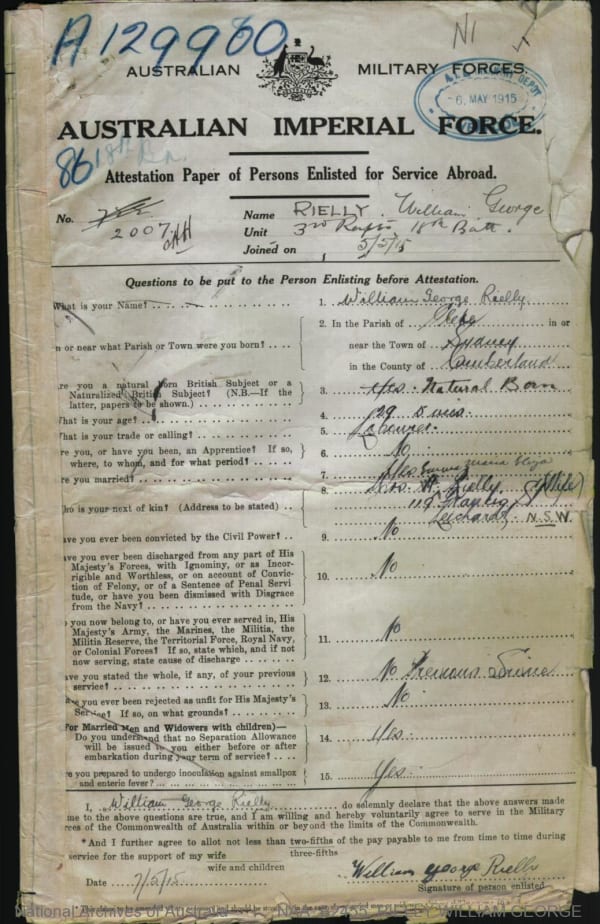 A129960
N1
AUSTRALIAN MILITARY FORCES.
6. MAY 1915
AUSTRALIAN IMPERIAL FORCE.
86 18th Bn.
Attestation Paper of Persons Enlisted for Service Abroad.
No. 2007
Name RIELLY. William George
Unit 3rd Rnfts 18th Batt.
Joined on 5/5/15
Questions to be put to the Person Enlisting before Attestation.
What is your Name? 1. William George Rielly
n or near what Parish or Town were you born? 2. In the Parish of Glebe in or
near the Town of Sydney
in the County of Cumberland
re you a natural born British Subject or a
Naturalized British Subject? (N.B.—If the
latter, papers to be shown.) 3. Yes. Natural Born
What is your age? 4. 29 5 mos.
What is your trade or calling? 5. Labourer.
re you, or have you been, an Apprentice? If so,
where, to whom, and for what period? 6. No
re you married? 7. Yes Emma Maria Eliza
ho is your next of kin? (Address to be stated) 8. Mrs. Rielly (Wife)
119
Leichardt. N.S.W.
ave you ever been convicted by the Civil Power? 9. No
ave you ever been discharged from any part of His
Majesty's Forces, with Ignominy, or as Incor-
rigible and Worthless, or on account of Convic-
tion of Felony, or of a Sentence of Penal Servi
tude, or have you been dismissed with Disgrace
from the Navy? 10. No
o you now belong to, or have you ever served in, His
Majesty's Army, the Marines, the Militia, the
Militia Reserve, the Territorial Force, Royal Navy,
or Colonial Forces? If so, state which, and if not
now serving, state cause of discharge 11. No
ave you stated the whole, if any, of your previous
service? 12. No Previous Service
ave you ever been rejected as unfit for His Majesty's
Service? If so, on what grounds? 13. No
For Married Men and Widowers with children)—
Do you understand that no Separation Allowance
will be issued to you either before or after
embarkation during your term of service? 14. Yes.
re you prepared to undergo inoculation against smallpox
and enteric fever? 15. Yes.
I, William George Rielly do solemnly declare that the above answers made
me to the above questions are true, and I am willing and hereby voluntarily agree to serve in the Military
rces of the Commonwealth of Australia within or beyond the limits of the Commonwealth.
*And I further agree to allot not less than two-fifths of the pay payable to me from time to time during
three-fifths
service for the support of my wife
wife and children
Date 7/5/15 William George Rielly
Signature of person enlisted.
National Archives of Australia NAA: B2455, RIELLY WILLIAM GEORGE